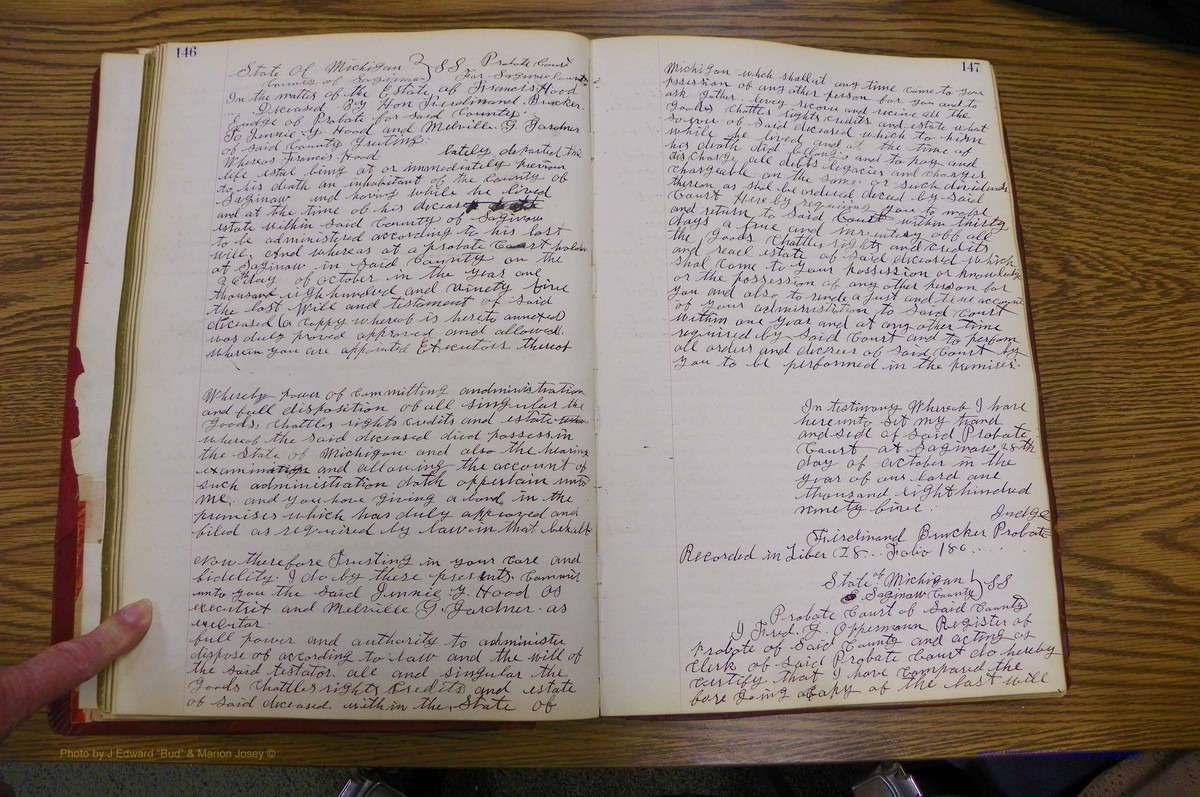 146
State Of Michigan } SS Probate Court
County of Saginaw For Saginaw County
In the matter of the Estate of Francis Hood
Deceased By Hon Ferdinand Brucker
Judge of Probate for said County
To Jennie Y. Hood and Melville G. Gardner
of said County Greeting:
Whereas Francis Hood lately departed this
life estal being at or immediately previous
to his death an inhabitant of the County of
Saginaw and having while he lived
and at the time of his deceas
estate within said County of Saginaw
to be administered according to his last
will, And whereas at a probate Court holden
at Saginaw in said County on the
day of October in the year one
thousand eigh hundred and ninety five
the last Will and testament of said
deceased (a coppy whereof is hereto annexed
was duly proved approved and allowed.
wherein you are appointed Executors thereof
Whereby power of committing andministration
and full disposition of all singular the
goods, chattles rights credits and estate
whereof the said deceased died possessin
the State of Michigan and also the hearing
examination and allowing the account of
such administration doth appertain unto
me, and you have giving a bond in the
premises which has duly approved and
filed as required by law in that behalf
Now therefore Trusting in your care and
fidelity. I do by these presents Commit
unto you the said Jennie Y. Hood as
executrix and Melville G. Gardner as
executor
full power and authority to administer
dispose of according to law and the will of
the said testator all and singular the
goods chattles rights credits and estate
of said deceased within the State of
147
Michigan which shall at any time come to your
possession of any other person for you and to
ask gather levey recove and recive all the
goods chattles rights credits and estate what
soever of said deceased which to him
while he lived and at the time of
his death did belong and to pay and
discharge all debts legacies and charges
chargeable on the same or such dividends
thereon as shal be ordered deced by said
Court Hereby requiring you to make
and return to said Court within thirty
days a true and inventery off all
the goods chattles rights and credits
and reael estate of said deceased which
shal come to your possession or knowledg
or the possession of any other person for
you and also to rende a just and true account
of your administration to said Court
within one year and at any other time
required by said Court and to perform
all orders and decrees of said Court by
you to be performed in the premises.
In testimony Whereof I have
hereinto set my hand
and seal of said Probate
Court at Saginaw 28th
day of October in the
year of our lord one
thousand eight hundred
ninety five.
Judge
Ferdinand Brucker Probate
Recorded in Liber 28.. Folio 180.....
State of Michigan } SS
Saginaw County
Probate Court of Said County
I Fred. J. Oppermann Register of
Probate of Said County and acting as
clerk of Said Probate Court do hereby
certify that I have compared the
fore going Copy of the last will
Photo by J Edward "Bud" & Marion Josey ©